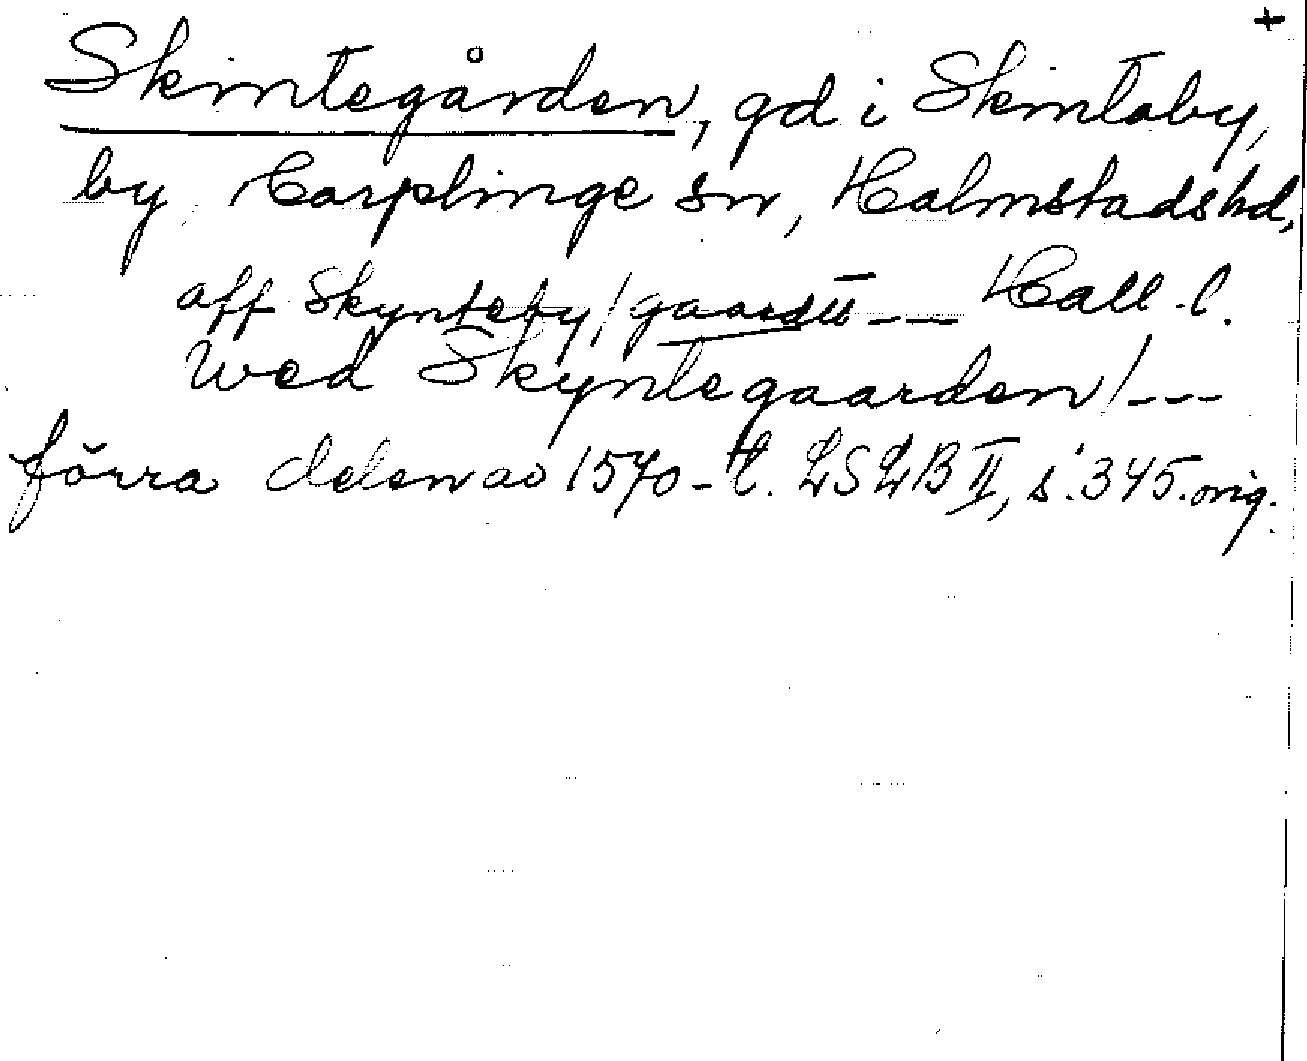 +
Skintegården, gd i Skintaby,
by, Harplinge sn, Halmstads hd,
aff Skynteby / gaardē --- Hall. l.
wed Skyntegaarden / ---
förra delen av 1570-t. LSLB II, s. 345. orig.